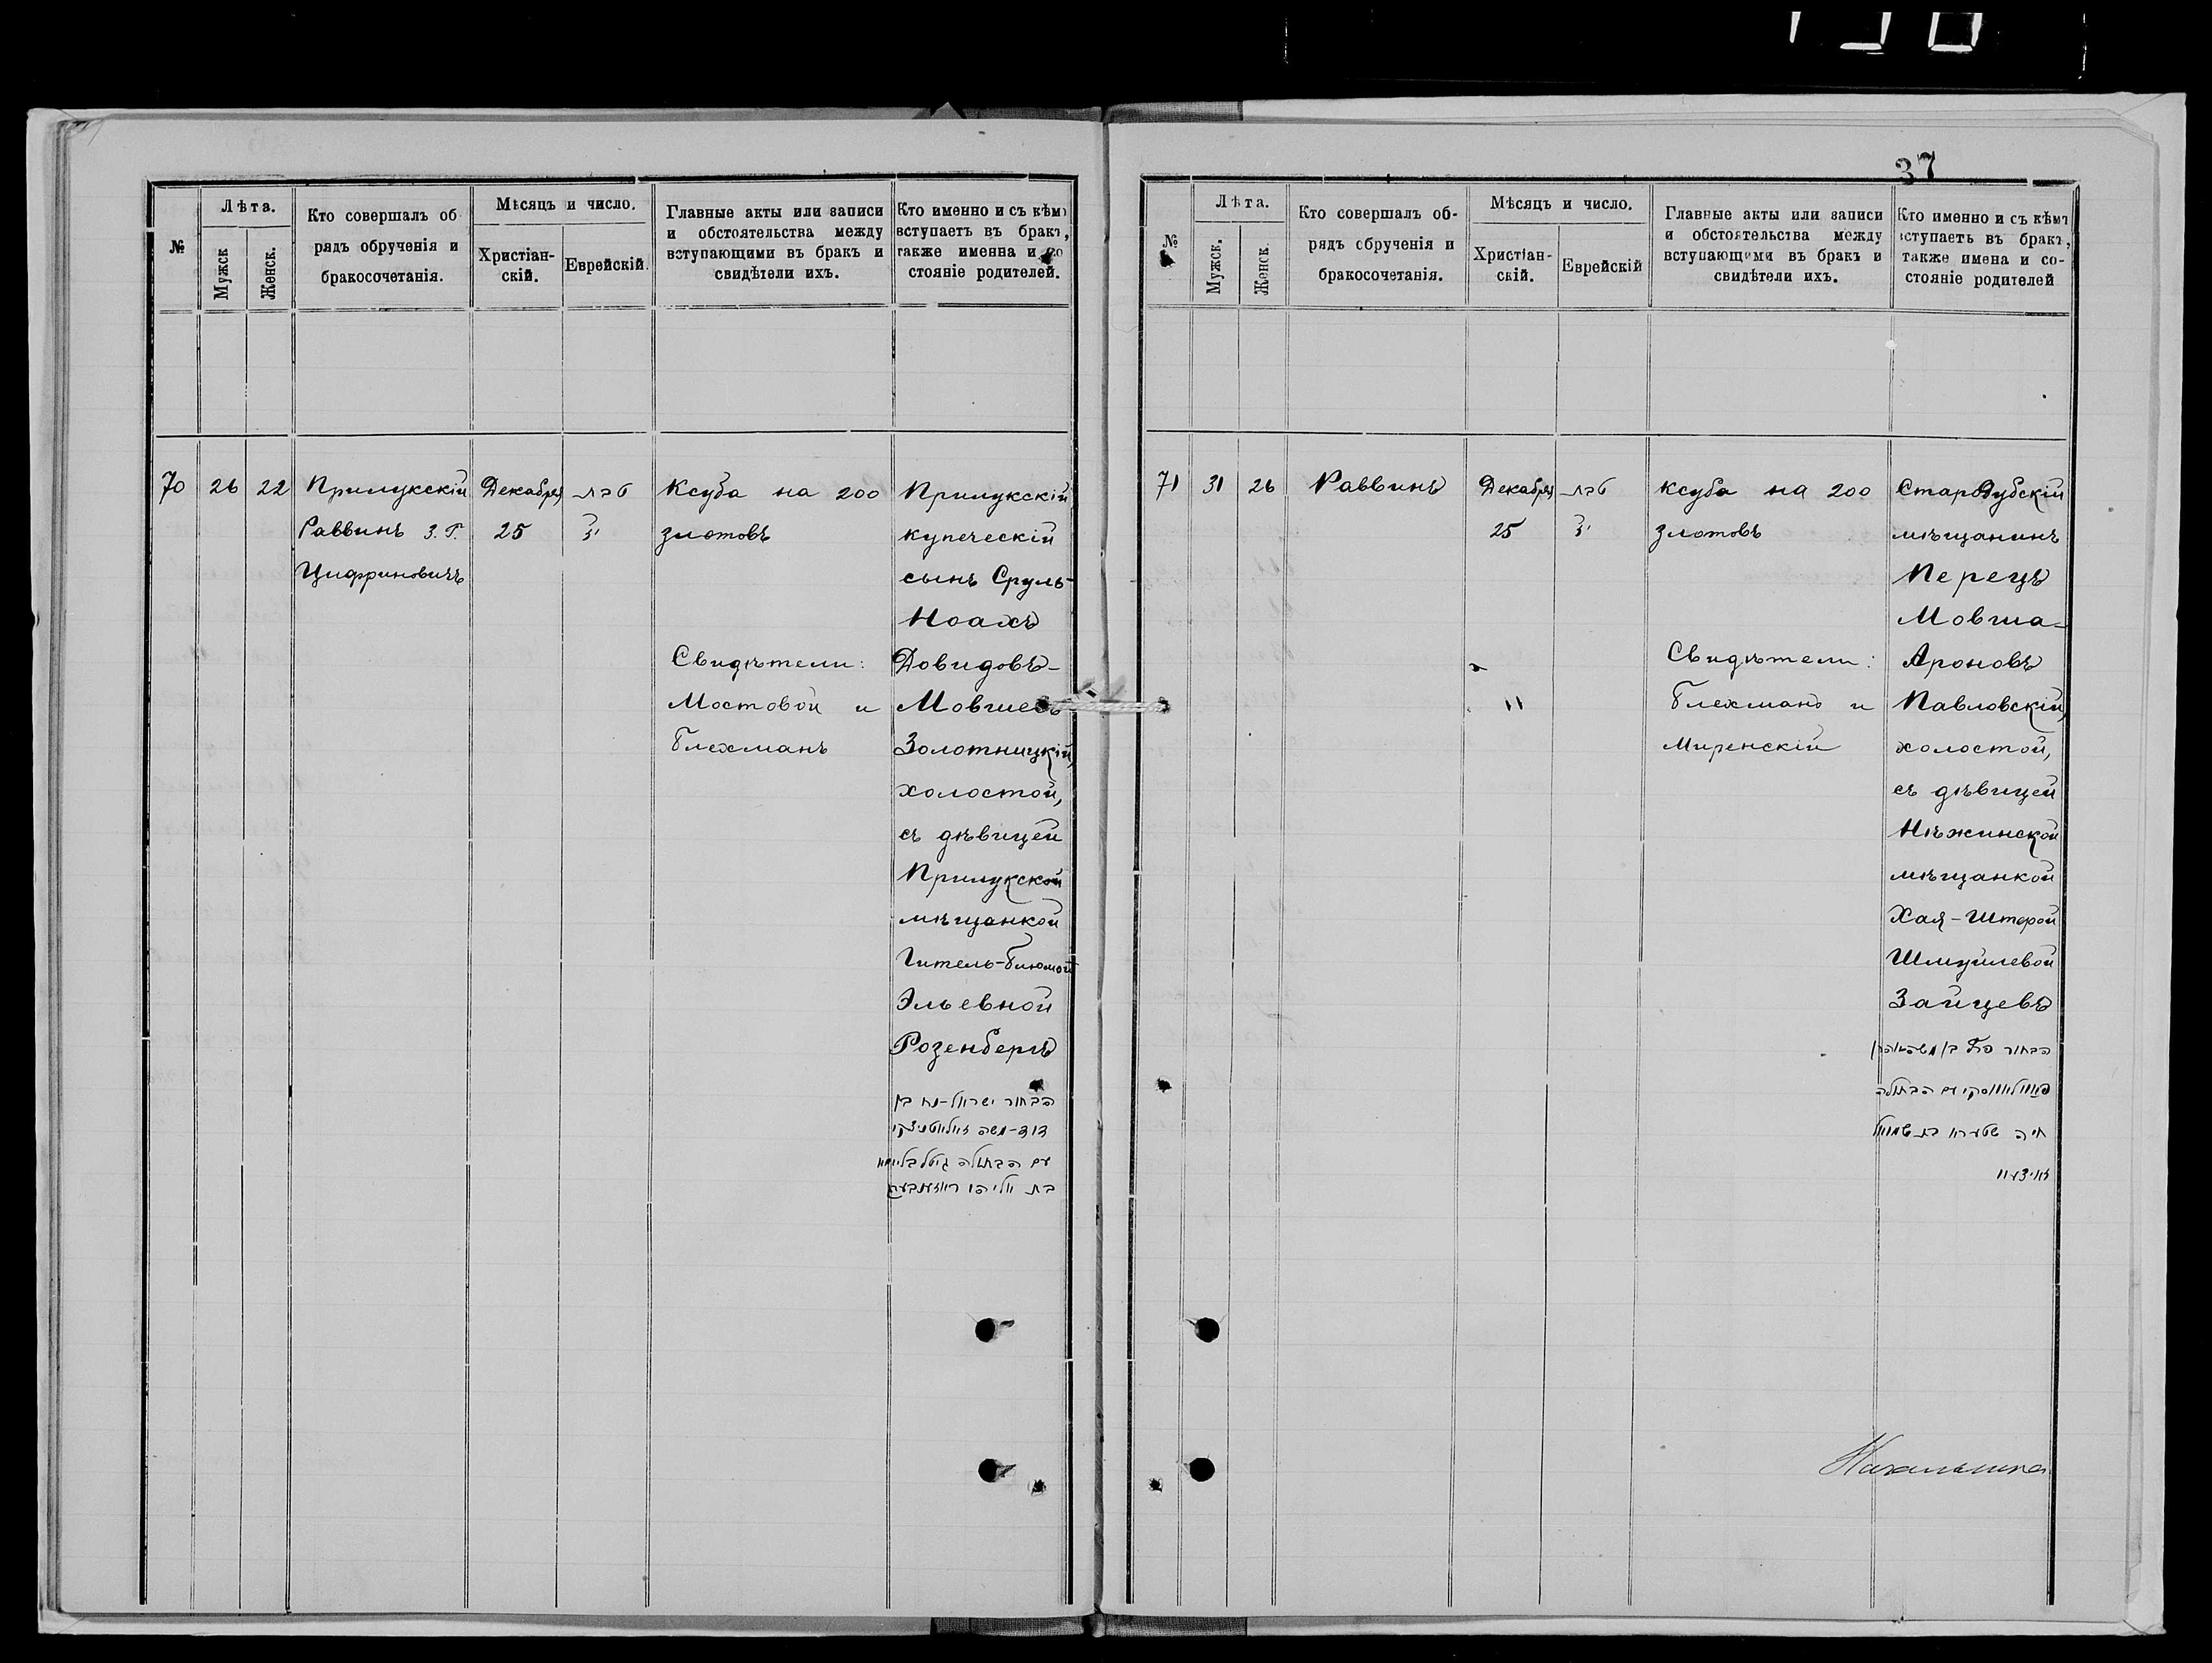 37
№
Лѣта.
Мужск
Женск.
Кто совершалъ об
рядъ обрученія и
бракосочетанія.
Мѣсяцъ и число.
Христіан-
скій.
Еврейскій.
Главные акты или записи
и обстоятельства между
вступающими въ бракъ и
свидѣтели ихъ.
Кто именно и съ кѣмъ
вступаетъ въ бракъ,
также имена и со
стояніе родителей.
70
26
22
Прилукскій
Раввинъ З. Г.
Цифриновичъ
Декабря
25
טבת
יג
Ксуба на 200
злотовъ
Свидѣтели:
Мостовой и
Блехманъ
Прилукскій
купеческій
сынъ Сруль-
Ноахъ
Довидовъ-
Мовшевъ
Золотницкій,
холостой,
съ дѣвицей
Прилукской
мѣщанкой
Гитель-Блюмой
Эльевной
Розенбергъ
הבחור ישראל-נח בן
דוד-משה זאלאטניצקי
עם הבתולה גיטל בליומא
בת אליהו ראזענבערג
№
Лѣта.
Мужск.
Женск.
Кто совершалъ об-
рядъ обрученія и
бракосочетанія.
Мѣсяцъ и число.
Христіан-
скій.
Еврейскій
Главные акты или записи
и обстоятельства между
вступающими въ бракъ и
свидѣтели ихъ.
Кто именно и съ кѣмъ
вступаетъ въ бракъ,
также имена и со-
стояніе родителей
71
31
26
Раввинъ
Декабря
25
טבת
יג
Ксуба на 200
злотовъ
Свидѣтели:
Блехманъ и
Миренскій
Стародубскій
мѣщанинъ
Перецъ
Мовша-
Ароновъ
Павловскій,
холостой,
съ дѣвицей
Нѣжинской
мѣщанкой
Хая-Штерой
Шмуйлевой
Зайцевъ
הבחור פרץ בן משה אהרן
פאוולאווסקי עם הבתולה
חיה שטערא בת שמואל
זאיצעוו